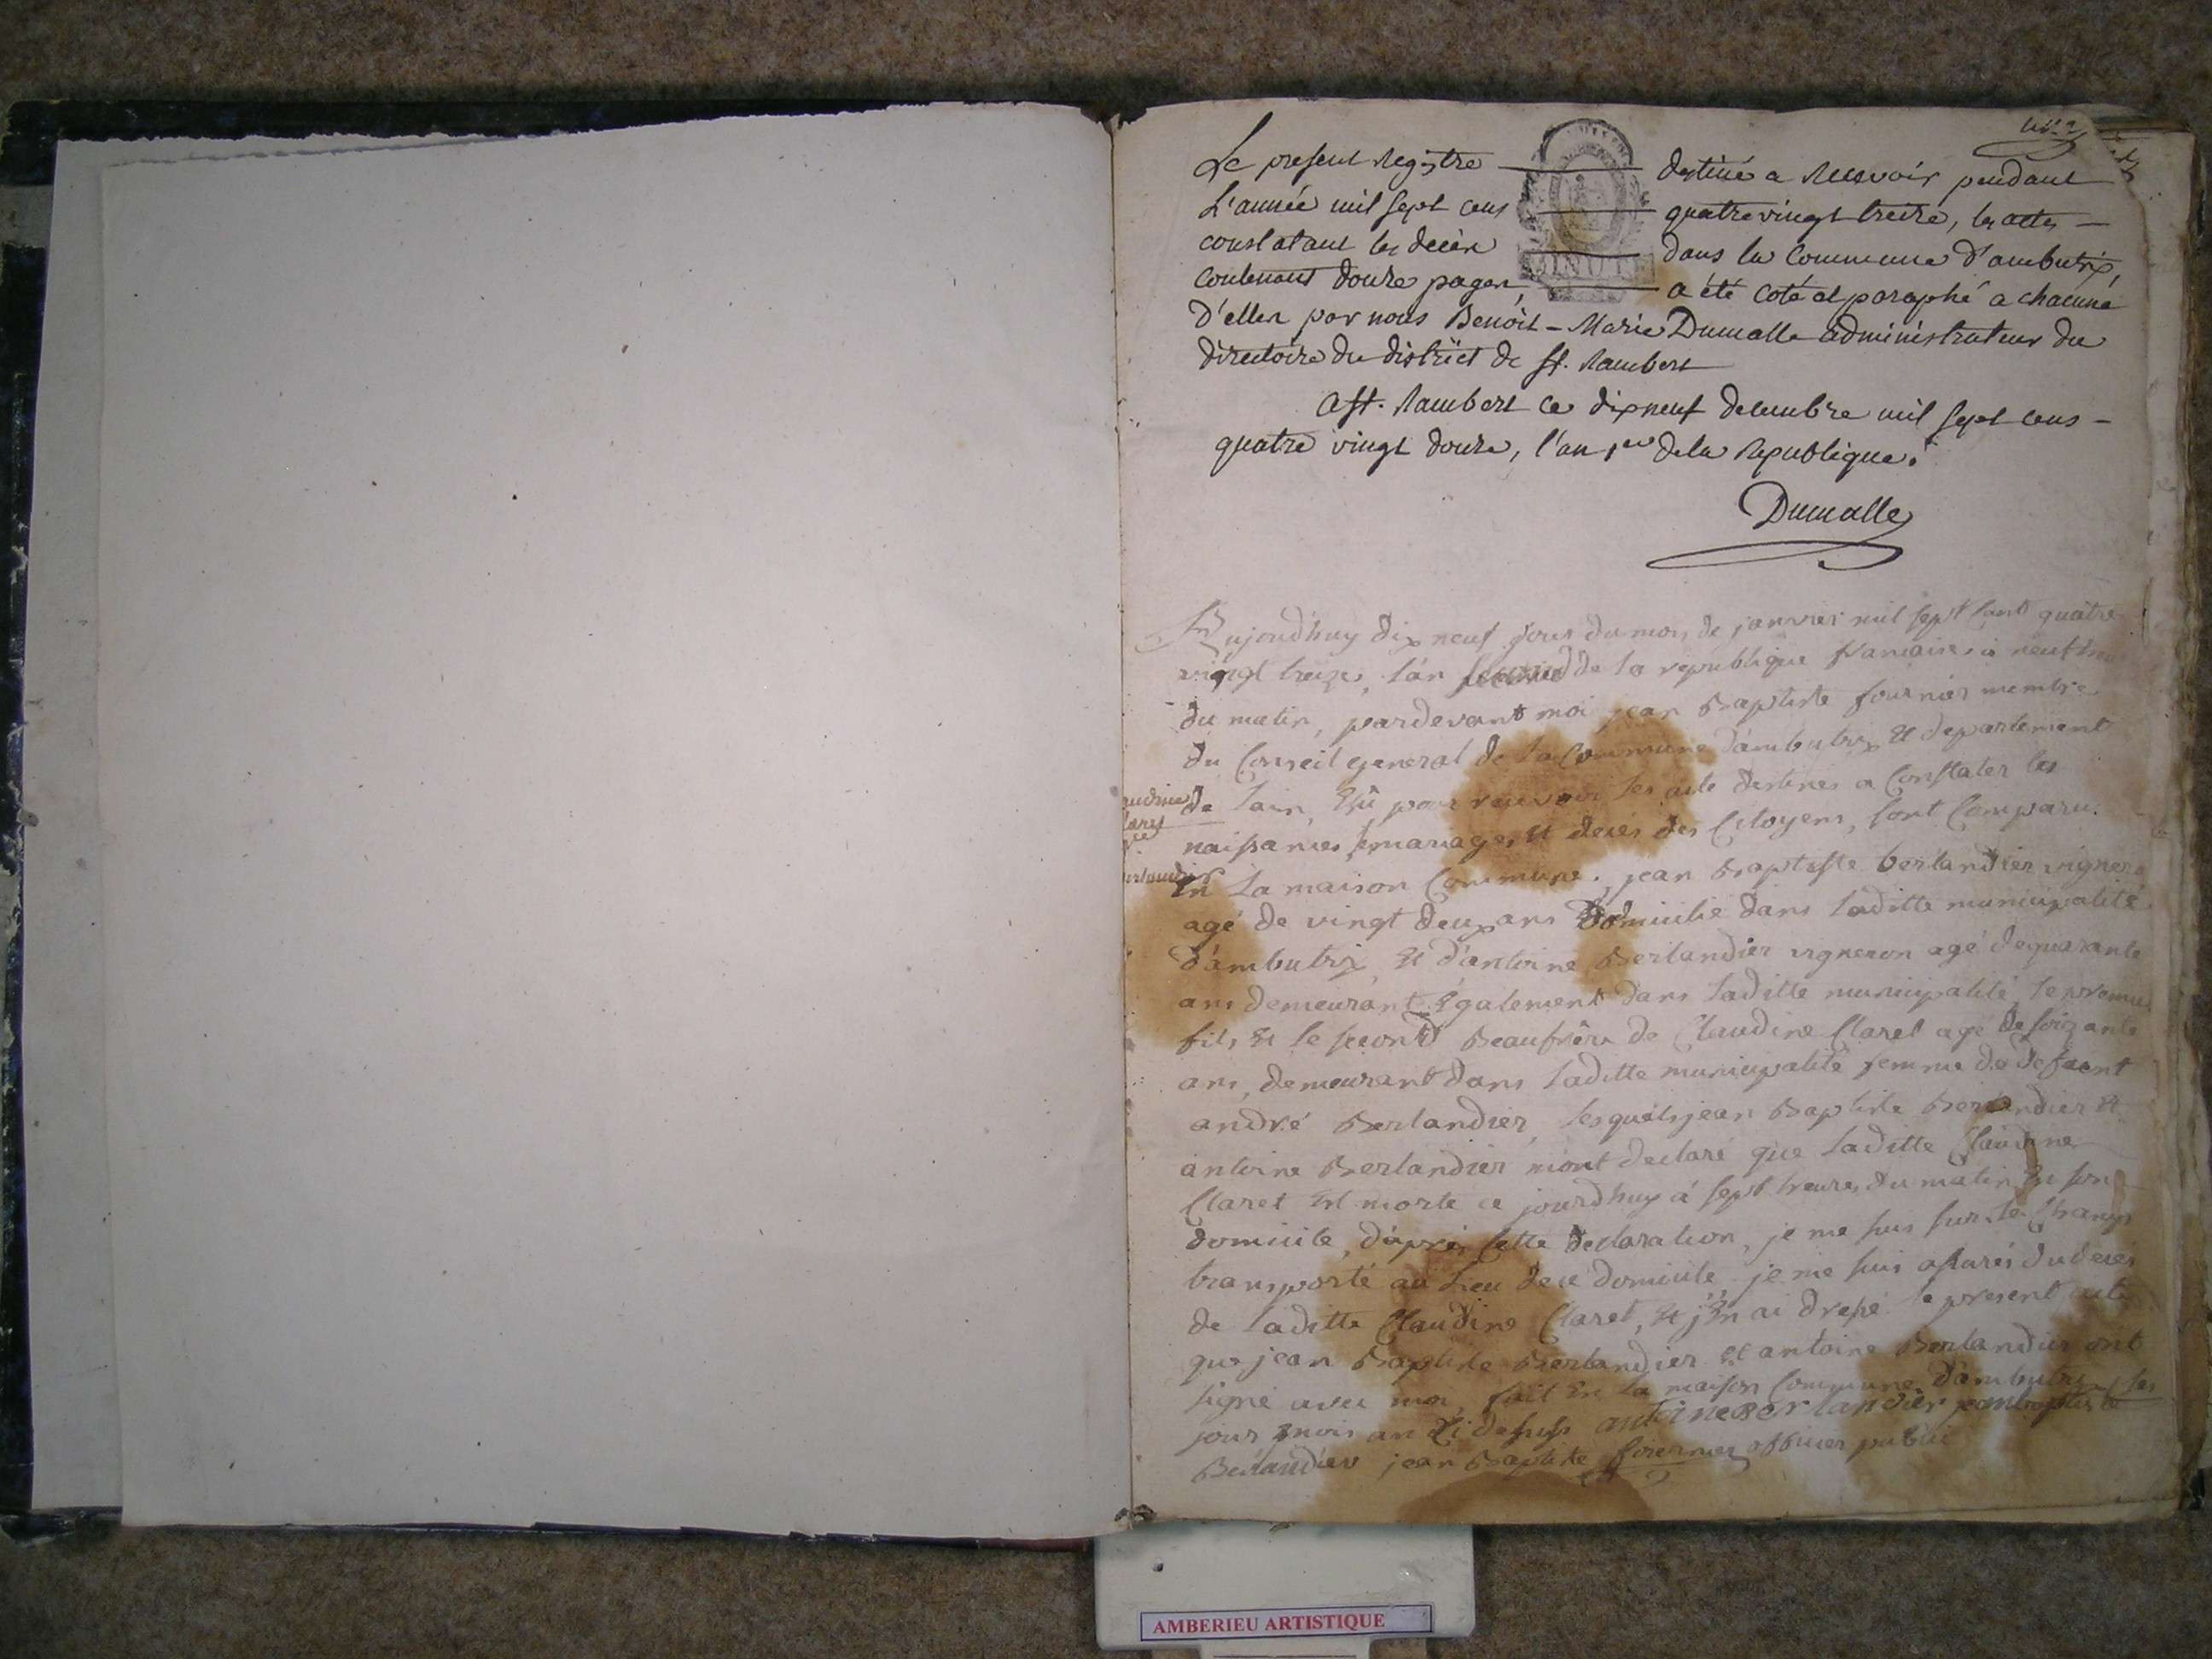 Le present Registre destiné a Recevoir pendant
L'année mil sept cens quatrevingt treize, les actes
constatant les décès dans la Commune d'ambutrix,
contenant douze pages, a été coté et paraphé a chacune
d'elles par nous Benoit-Marie Dumalle administrateur du
directoire du district de St. Rambert
A St. Rambert ce dixneuf decembre mil sept cens
quatre vingt douze, l'an 1er de la Republique.
Dumalle
MINUTE
Aujoudhuy dix neuf jour du mois de janvier mil sept cent quatre
vingt treize, l'an second de la republique francaise à neuf heu
du matin, pardevant moi jean Baptiste fournier membre
du Conseil general de la Commune d'ambutrix et departement
de lain, élû pour recevoir les acte destinés a Constater les
naissances, mariages, et decés des Citoyens, sont Comparu.
en la maison Commune. jean Baptiste berlandier vigneron
agé de vingt deux ans domicilié dans laditte municipalité
d'ambutrix et d'antoine Berlandier vigneron agé dequarante
ans demeurant également dans laditte municipalité, le premier
fils et le second Beaufrère de Claudine Claret agé de soixante
ans, demeurant dans laditte municipalité femme de defunt
andré Berlandier, lesquels jean Baptiste Berlandier et
antoine Berlandier m'ont declaré que laditte Claudine
Claret est morte ce jourdhuy à sept heures du matin en son
domicile, d'après Cette declaration, je me suis sur le Champs
transporté au Lieu de ce domicile, je me suis assurés du decès
de laditte Claudine Claret, et j'en ai dressé le present acte
que jean Baptiste Berlandier et antoine Berlandier ont
signé avec moi, fait en la maison Commune d'ambutrix les
jour mois an Ci dessus antoine Berlandier jean baptiste
Berlandier jean Baptiste fournier officier public
AMBERIEU ARTISTIQUE